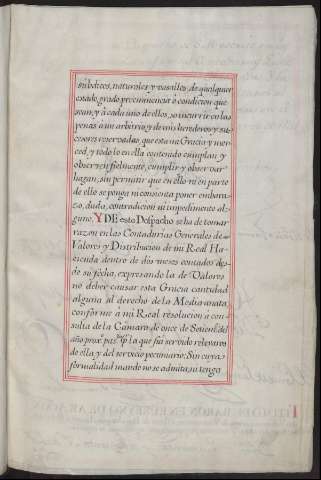 súbditos, naturales, y vasallos, de qualquier
estado, grado, preeminencia ò condicion que
sean, y à cada uno de ellos, so incurrir en las
penas à mi arbitrio, y de mis herederos y suc-
cesores reservadas, que esta mi Gracia, y mer-
ced, y todo lo en ella contenido cumplan, y
observen fielmente, cumplir, y observar
hagan, sin permitir que en ello ni en parte
de ello se ponga, ni consienta poner embara-
zo, duda, contradicion ni impedimento al-
guno. Y DE este Despacho se ha de tomar
razon en las Contadurias Generales de
Valores y Distribucion de mi Real Ha-
cienda dentro de dos meses contados des-
de su fecha, expresando la de Valores
no deber causar esta Gracia cantidad
alguna al derecho de la Media-anata,
conforme à mi Real resolucion à con-
sulta de la Camara de once de Setiemb. del
año prox. pas. por la que fui servido relevaros
de ella, y del servicio pecuniario: Sin cuya
formalidad mando no se admita, ni tenga
TITULO DE BARON EN EL REYNO DE ARAGON